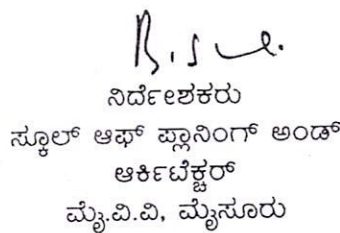 ನಿರ್ದೇಶಕರು
ಸ್ಕೂಲ್ ಆಫ್ ಪ್ಲಾನಿಂಗ್ ಅಂಡ್
ಆರ್ಕಿಟೆಕ್ಚರ್
ಮೈ.ವಿ.ವಿ, ಮೈಸೂರು